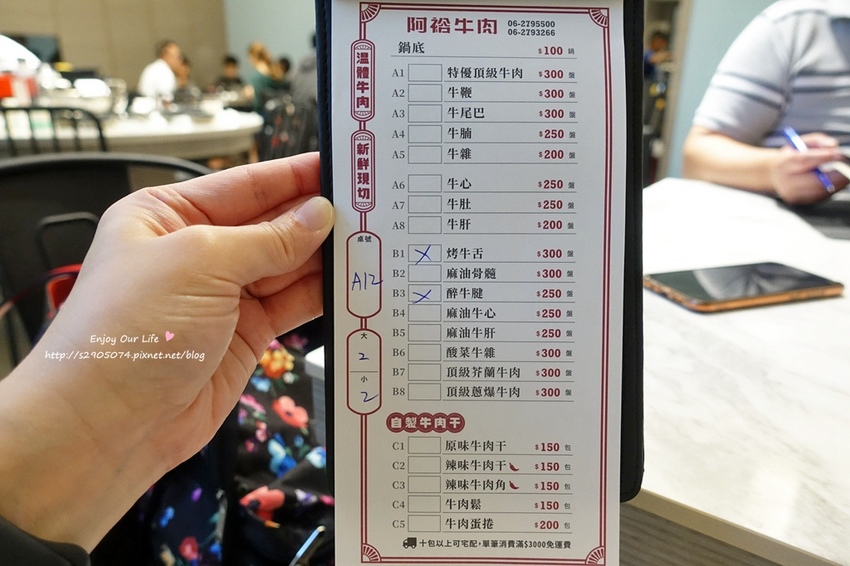 阿裕牛肉 06-2795500
06-2793266
鍋底 $100 鍋
溫體牛肉
新鮮現切
桌號
A12
大
2
小
2
A1 特優頂級牛肉 $300 盤
A2 牛鞭 $300 盤
A3 牛尾巴 $300 盤
A4 牛腩 $250 盤
A5 牛雜 $200 盤
A6 牛心 $250 盤
A7 牛肚 $250 盤
A8 牛肝 $200 盤
B1 X 烤牛舌 $300 盤
B2 麻油骨髓 $300 盤
B3 X 醉牛腱 $250 盤
B4 麻油牛心 $250 盤
B5 麻油牛肝 $250 盤
B6 酸菜牛雜 $300 盤
B7 頂級芥蘭牛肉 $300 盤
B8 頂級蔥爆牛肉 $300 盤
自製牛肉干
C1 原味牛肉干 $150 包
C2 辣味牛肉干 $150 包
C3 辣味牛肉角 $150 包
C4 牛肉鬆 $150 包
C5 牛肉蛋捲 $200 包
十包以上可宅配,單筆消費滿$3000免運費
Enjoy Our Life
http://s2905074.pixnet.net/blog